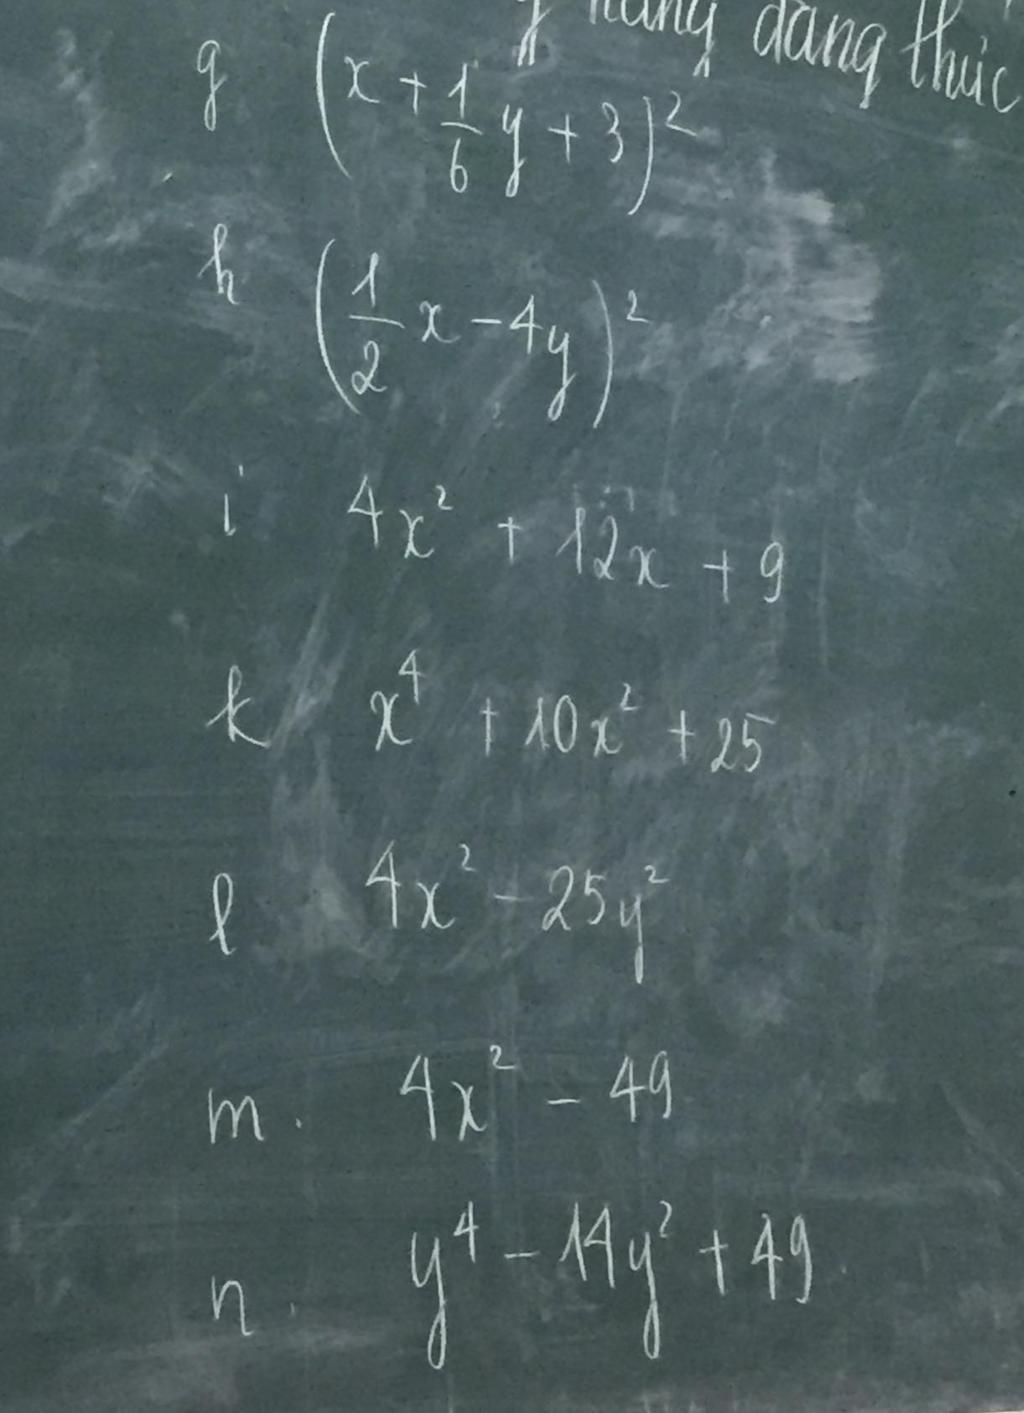 hằng đẳng thức
g (x + 1/6 y + 3)²
h (1/2 x - 4y)²
i 4x² + 12x + 9
k x⁴ + 10x² + 25
l 4x² - 25y²
m. 4x² - 49
n. y⁴ - 14y² + 49